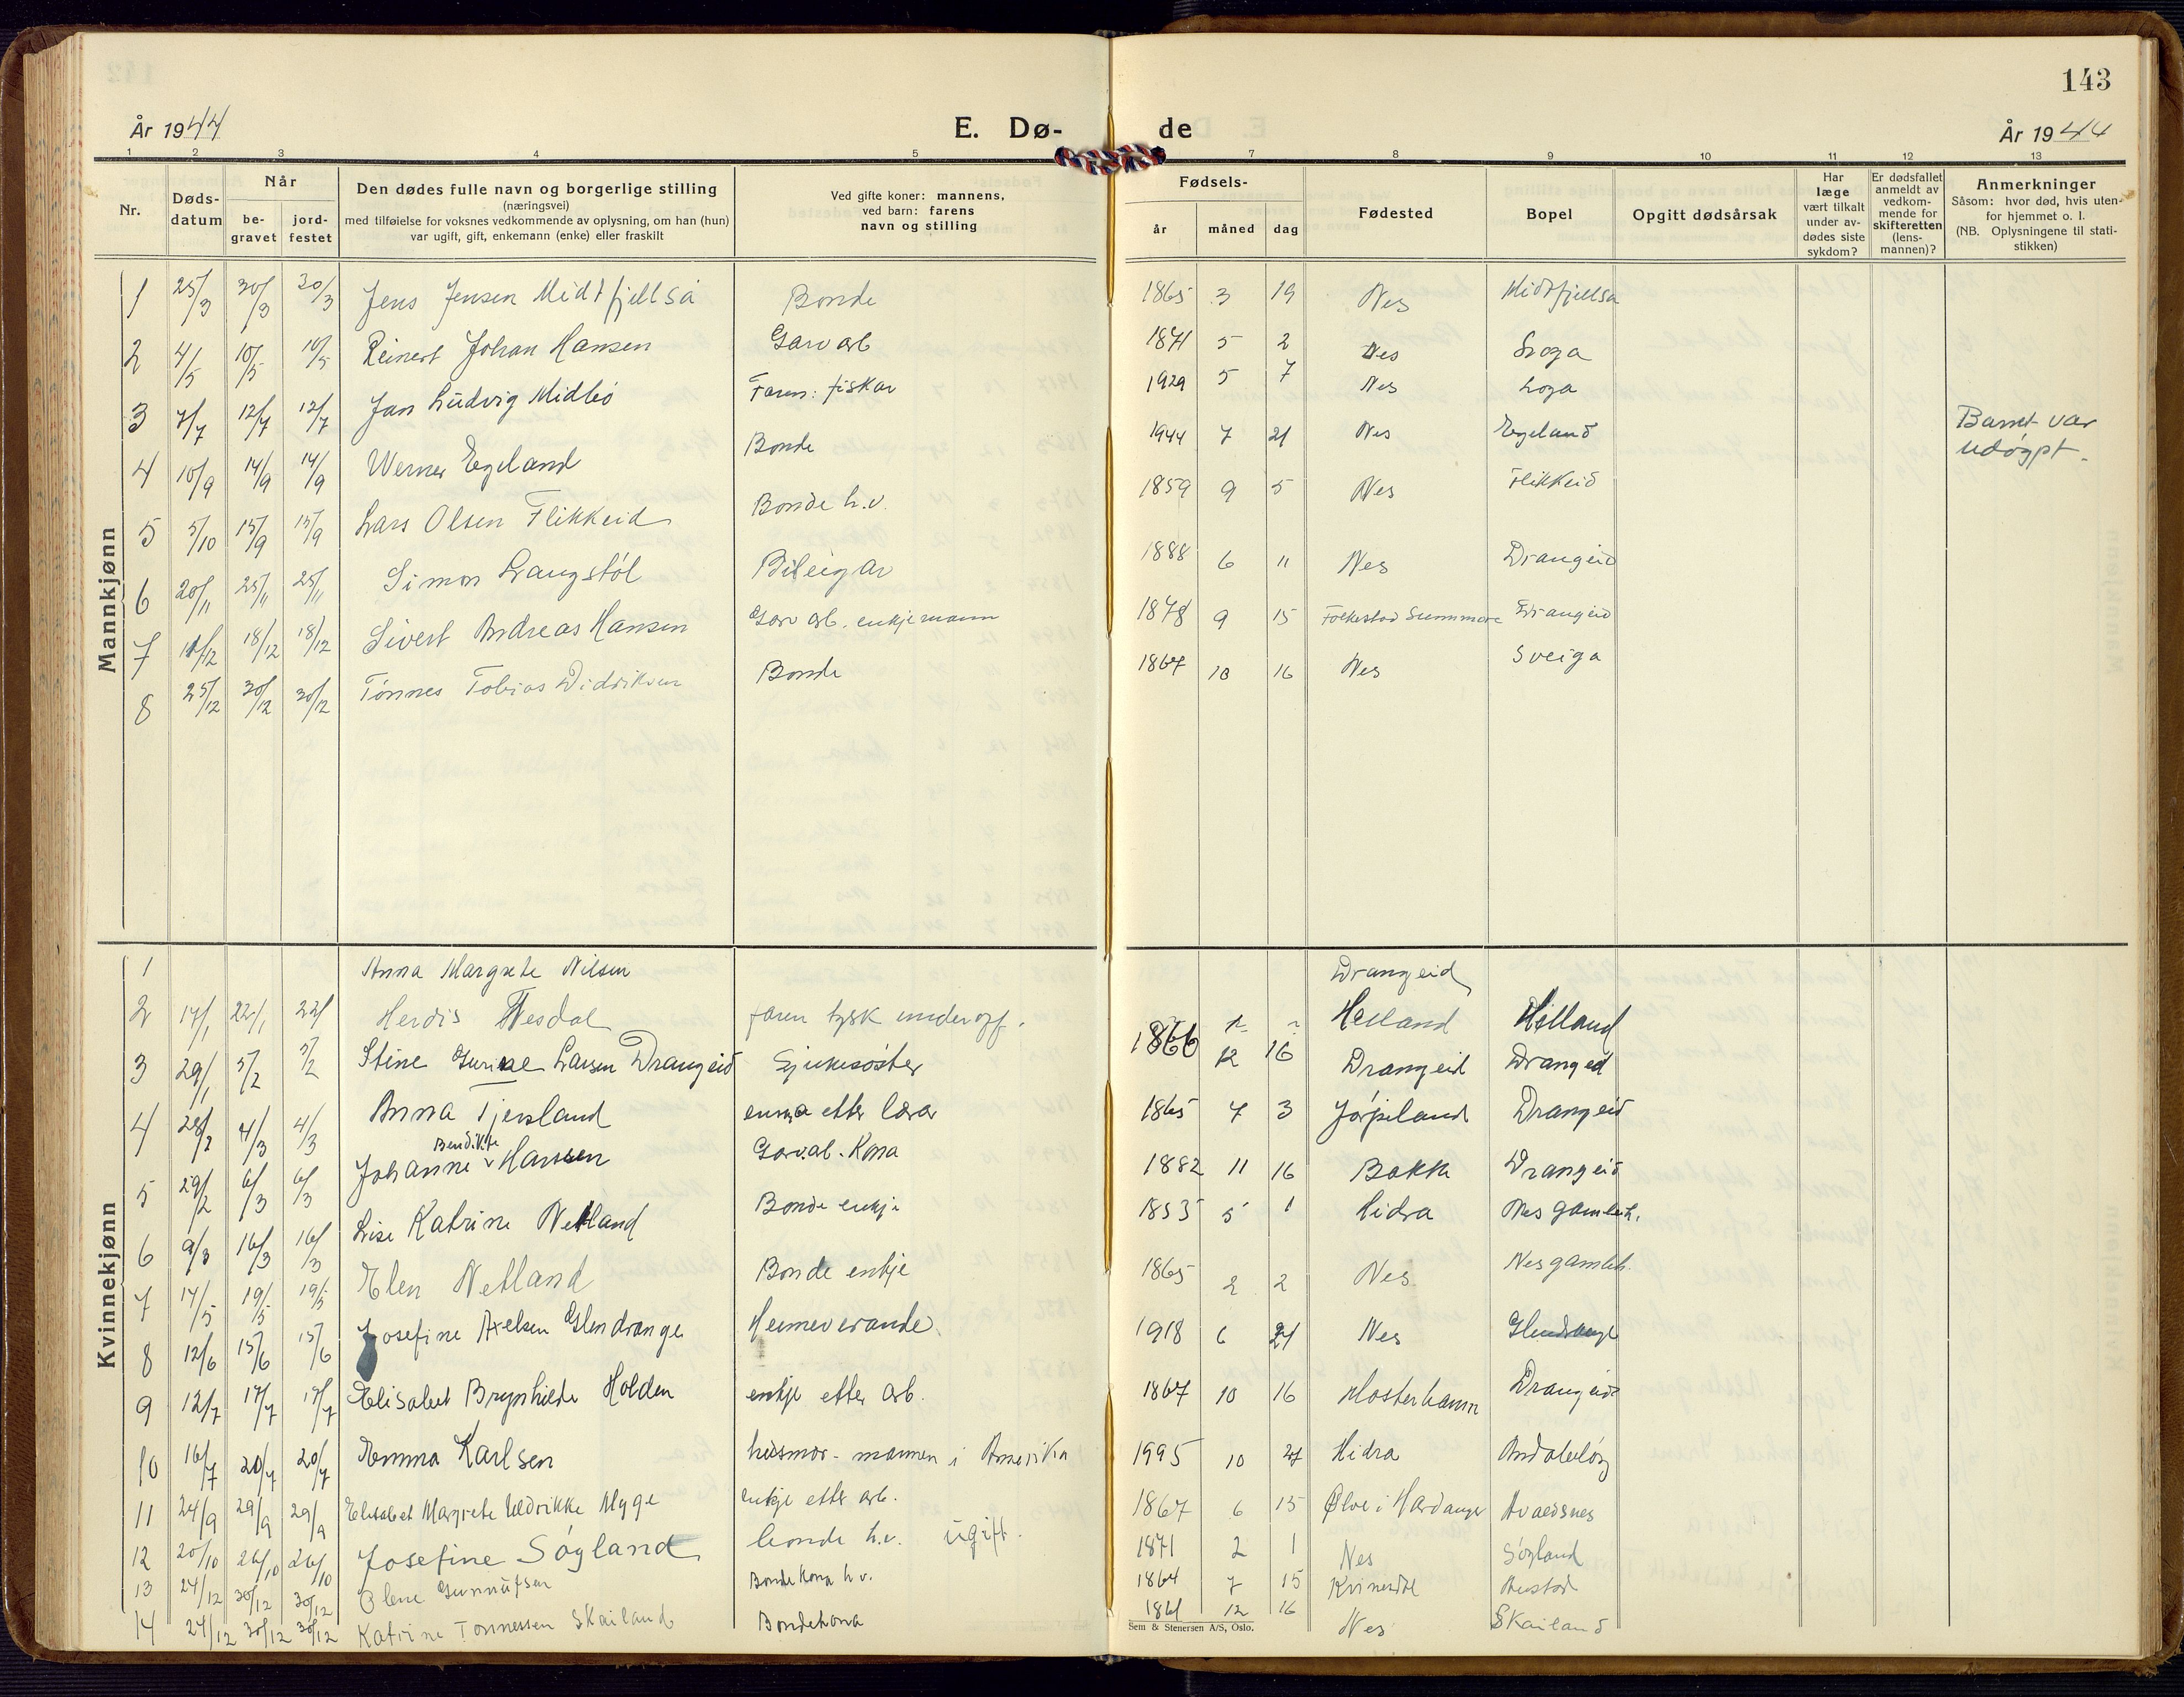 143
År 1944
E. Dø-
de
År 1944
1 2 3 4 5 7 8 9 10 11 12 13
Nr.
Døds-
datum
Når
be-
gravet
jord-
festet
Den dødes fulle navn og borgerlige stilling
(næringsvei)
med tilføielse for voksnes vedkommende av oplysning, om han (hun)
var ugift, gift, enkemann (enke) eller fraskilt
Ved gifte koner: mannens,
ved barn: farens
navn og stilling
Fødsels-
år måned dag
Fødested
Bopel
Opgitt dødsårsak
Har
læge
vært tilkalt
under av-
dødes siste
sykdom?
Er dødsfallet
anmeldt av
vedkom-
mende for
skifteretten
(lens-
mannen)?
Anmerkninger
Såsom: hvor død, hvis uten-
for hjemmet o. l.
(NB. Oplysningene til stati-
stikken)
Mannkjønn
1 25/3 30/3 30/3 Jens Jensen Midtfjellså Bonde 1865 3 19 Nes Midtfjellså
2 4/5 10/5 10/5 Reinert Johan Hansen Garvarb 1871 5 2 Nes Loga
3 7/7 12/7 12/7 Jan Ludvig Midbø Faren: fiskar 1929 5 7 Nes Loga
4 10/9 14/9 14/9 Werner Egeland Bonde 1944 7 21 Nes Egeland Barnet var
udøypt.
5 5/10 15/9 15/9 Lars Olsen Flikkeid Bonde h.v. 1859 9 5 Nes Flikkeid
6 20/11 25/11 25/11 Simon Langstøl Bileigar 1888 6 11 Nes Drangeid
7 11/12 18/12 18/12 Sivert Andreas Hansen Garv arb. enkjemann 1878 9 15 Folkestad Sunnmøre Drangeid
8 25/12 30/12 30/12 Tønnes Tobias Didriksen Bonde 1867 10 16 Nes Sveiga
Kvinnekjønn
1 Anna Margrete Nilsen Drangeid
2 17/1 22/1 22/1 Herdis Nesdal faren tysk underoff. Helland Helland
3 29/1 5/2 5/2 Stine Gurine Larsen Drangeid Sjukesøster 1866 12 16 Drangeid Drangeid
4 28/2 4/3 4/3 Anna Tjersland enkja etter lærar 1865 7 3 Jørpeland Drangeid
5 29/2 6/3 6/3 Johanne Bendikte Hansen Garv.ab. Kona 1882 11 16 Bakke Drangeid
6 9/3 16/3 16/3 Lise Katrine Netland Bonde enkje 1853 5 1 Hidra Nes gamleh.
7 14/5 19/5 19/5 Elen Netland Bonde enkje 1865 2 2 Nes Nes gamleh.
8 12/6 15/6 15/6 Josefine Axelsen Glendrange Heimeverande 1918 6 21 Nes Glendrange
9 12/7 17/7 17/7 Elisabet Brynhilde Holden enkje etter arb. 1867 10 16 Mosterhamn Drangeid
10 16/7 20/7 20/7 Emma Karlsen husmor - mannen i Amerika 1995 10 27 Hidra
11 24/9 29/9 29/9 Elisabet Margrete Uldrikke Myge enkje etter arb. 1867 6 15 Ølve i Hardanger
12 20/10 26/10 26/10 Josefine Søyland bonde h.v. ugift. 1871 2 1 Nes Søyland
13 24/12 30/12 30/12 Olene Gunnufsen Bondekona h v. 1864 7 15 Kvinesdal
14 24/12 30/12 30/12 Katrine Tønnessen Skailand Bondekona 1861 12 16 Nes Skailand
Sem & Stenersen A/S, Oslo.